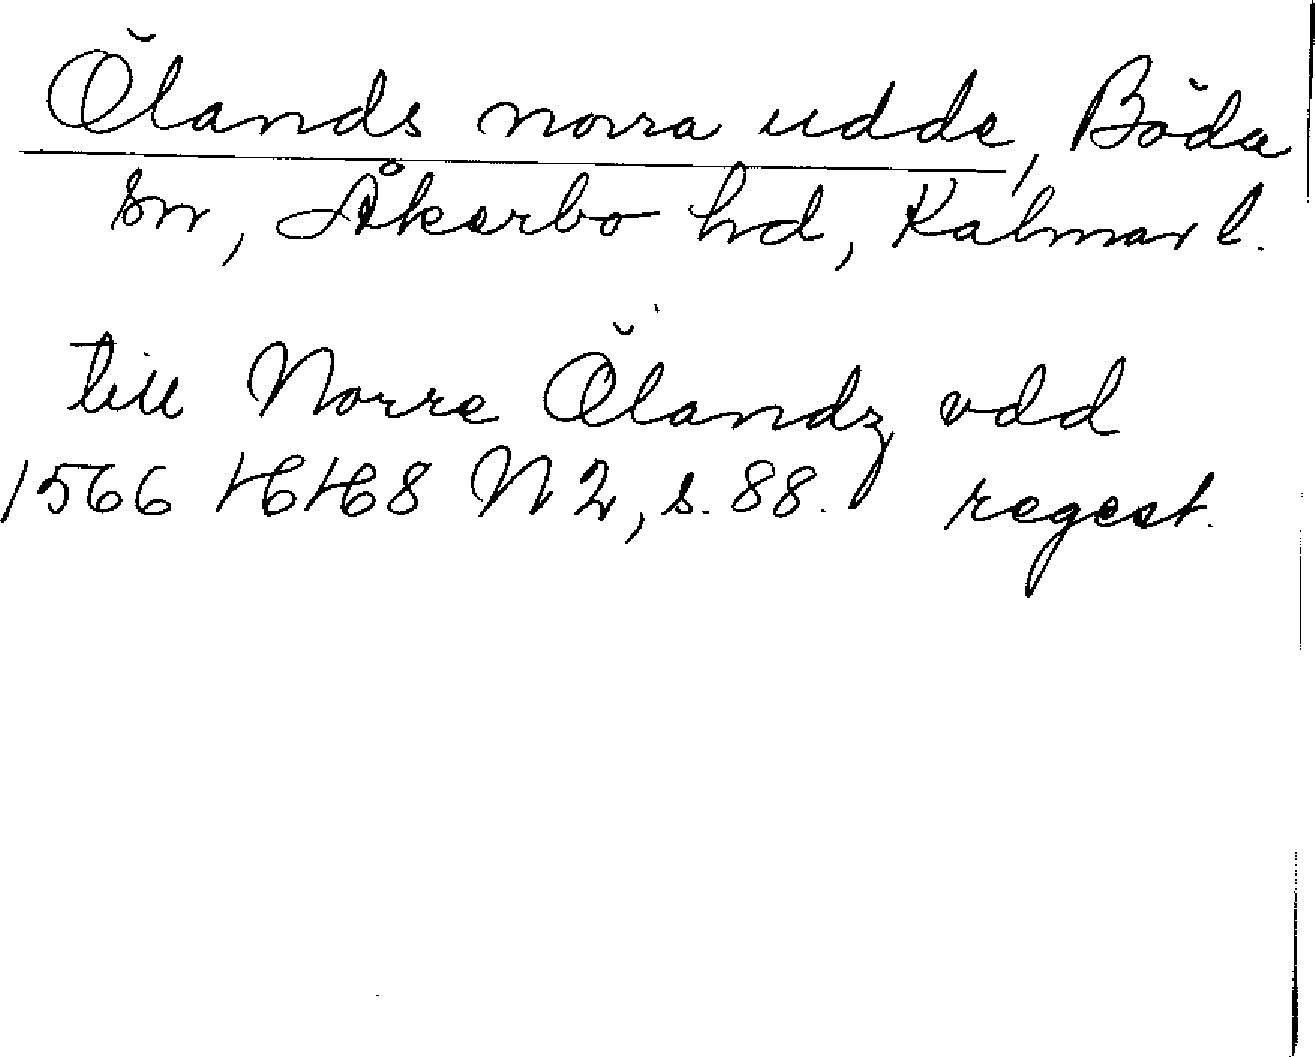 Ölands norra udde, Böda
sn, Åkerbo hd, Kalmar l.
till Norre Ölandz vdd
1566 HH8 N2, s. 88. regest.